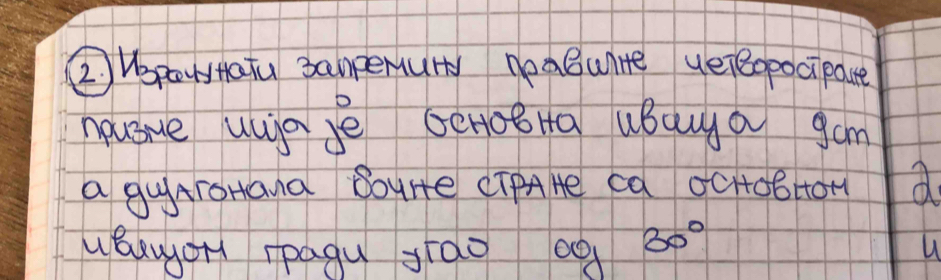 2. Израчунати запремину правилне четворостране
призме чија је основна ивица 9cm
а дијагонала бочне стране са основном
ивицом гради угао од 30°